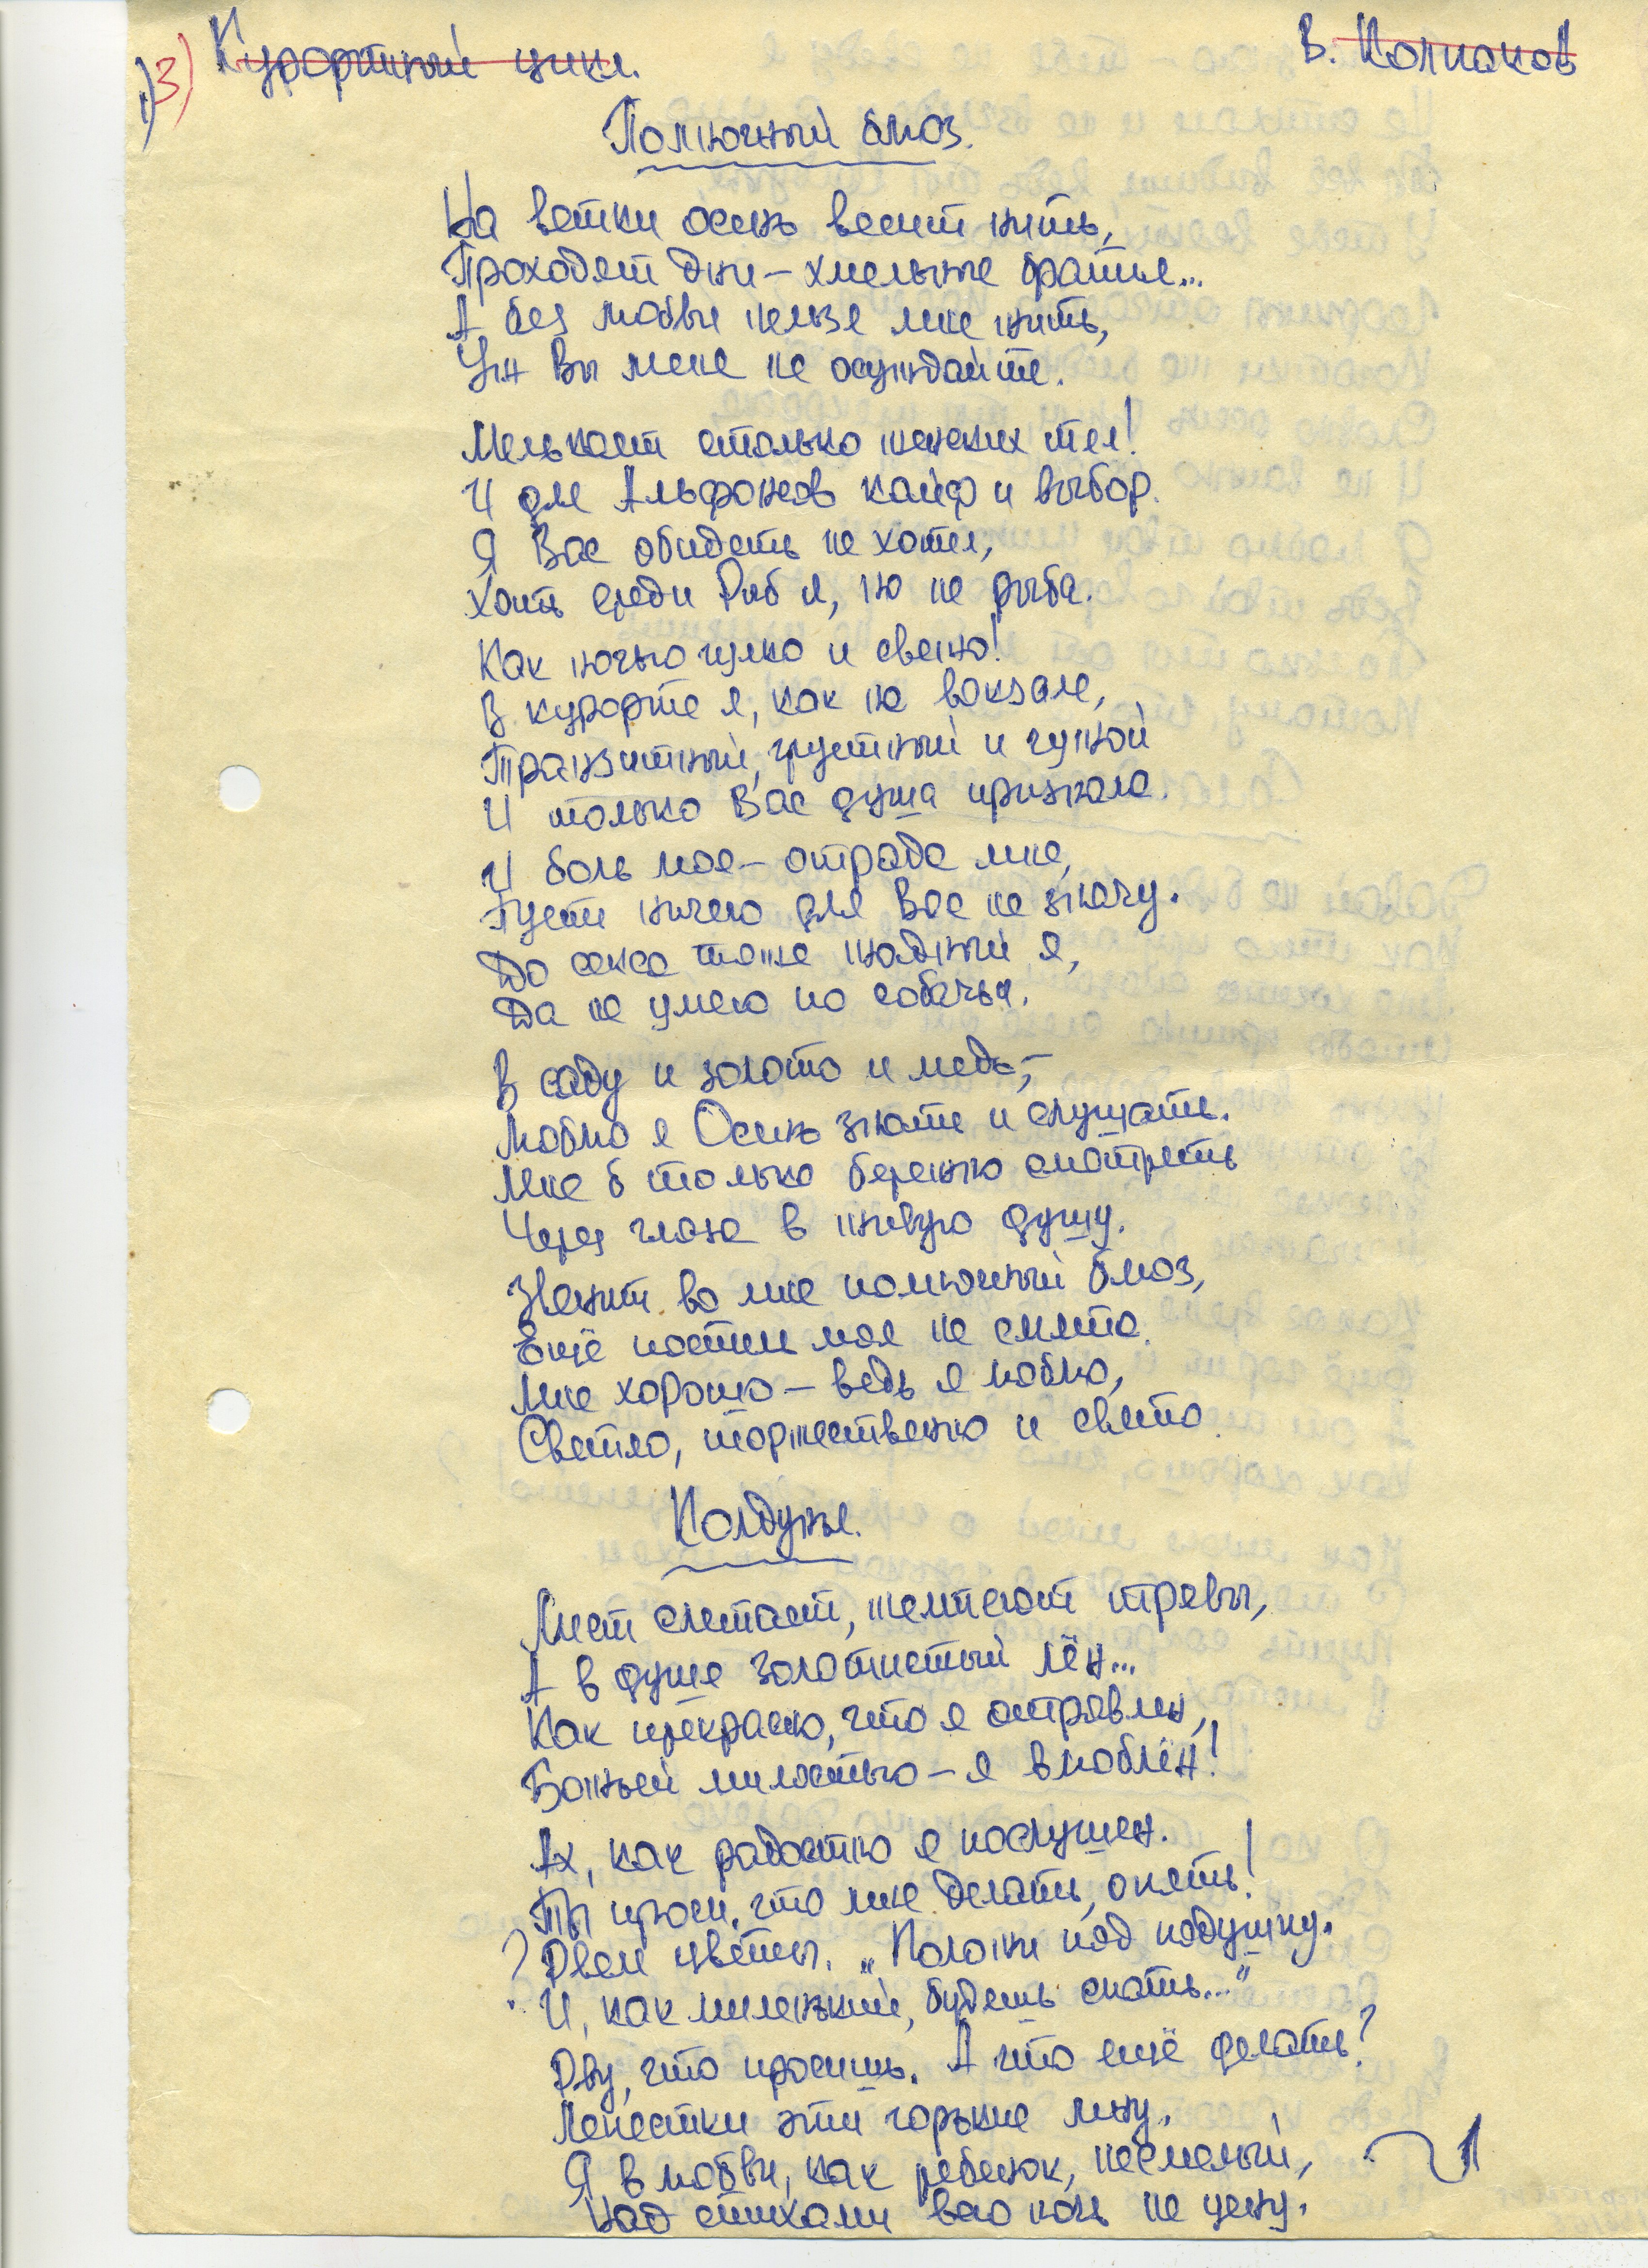 1) 3) Курортный цикл. В. Колпаков
Полночный блюз.
На ветки осень весит нить,
Проходят дни – хмельные братья...
А без любви нельзя мне жить,
Уж Вы меня не осуждайте.
Мелькает столько женских тел!
И для Альфонсов кайф и выбор.
Я Вас обидеть не хотел,
Хоть среди Рыб я, но не рыба.
Как ночью гулко и свежо!
В курорте я, как на вокзале,
Транзитный, грустный и чужой
И только Вас душа признала.
И боль моя – отрада мне,
Пусть ничего для Вас не значу.
До секса тоже жадный я,
Да не умею по собачьи.
В саду и золото и медь, –
Люблю я Осень знать и слушать.
Мне б только бережно смотреть
Через глаза в живую душу.
Звенит во мне полночный блюз,
Ещё постель моя не смята.
Мне хорошо – ведь я люблю,
Светло, торжественно и свято.
Колдунья.
Лист слетает, шепчут травы,
А в душе золотистый лён...
Как прекрасно, что я отравлен,
Божьей милостью – я влюблён!
Ах, как радостно я послушен.
Ты проси, что мне делать, опять!
? Рвём цветы. „Положи под подушку.
И, как миленький, будешь спать...“
Рву, что просишь. А что ещё делать?
Лепестки эти горькие мну.
Я в любви, как ребенок, несмелый,
Над стихами всю ночь не усну.